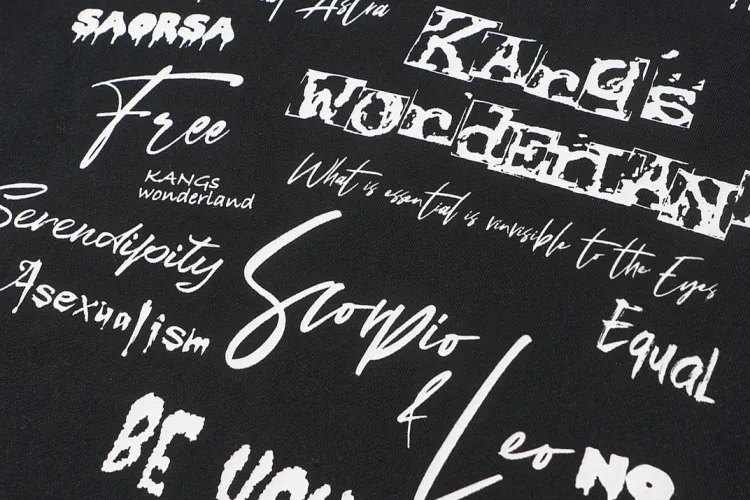 Astra
SAORSA
Kang's
WonderlAN
Free
KANGS
wonderland
What is essential is vinvisible to the Eyes
Serendipity
Asexualism
Scorpio
&
Leo
Equal
BE YOU
NO